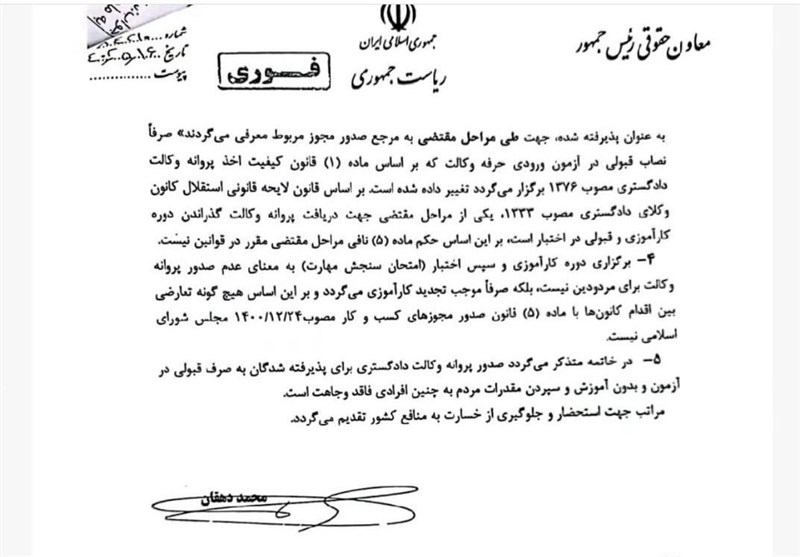 معاون حقوقی رئیس جمهور
جمهوری اسلامی ایران
ریاست جمهوری
فوری
شماره
تاریخ
پیوست
به عنوان پذیرفته شده، جهت طی مراحل مقتضی به مرجع صدور مجوز مربوط معرفی می‌گردند» صرفاً
نصاب قبولی در آزمون ورودی حرفه وکالت که بر اساس ماده (۱) قانون کیفیت اخذ پروانه وکالت
دادگستری مصوب ۱۳۷۶ برگزار می‌گردد تغییر داده شده است. بر اساس قانون لایحه قانونی استقلال کانون
وکلای دادگستری مصوب ۱۳۳۳، یکی از مراحل مقتضی جهت دریافت پروانه وکالت گذراندن دوره
کارآموزی و قبولی در اختبار است، بر این اساس حکم ماده (۵) نافی مراحل مقتضی مقرر در قوانین نیست.
۴– برگزاری دوره کارآموزی و سپس اختبار (امتحان سنجش مهارت) به معنای عدم صدور پروانه
وکالت برای مردودین نیست، بلکه صرفاً موجب تجدید کارآموزی می‌گردد و بر این اساس هیچ گونه تعارضی
بین اقدام کانون‌ها با ماده (۵) قانون صدور مجوزهای کسب و کار مصوب۱۴۰۰/۱۲/۲۴ مجلس شورای
اسلامی نیست.
۵– در خاتمه متذکر می‌گردد صدور پروانه وکالت دادگستری برای پذیرفته شدگان به صرف قبولی در
آزمون و بدون آموزش و سپردن مقدرات مردم به چنین افرادی فاقد وجاهت است.
مراتب جهت استحضار و جلوگیری از خسارت به منافع کشور تقدیم می‌گردد.
محمد دهقان